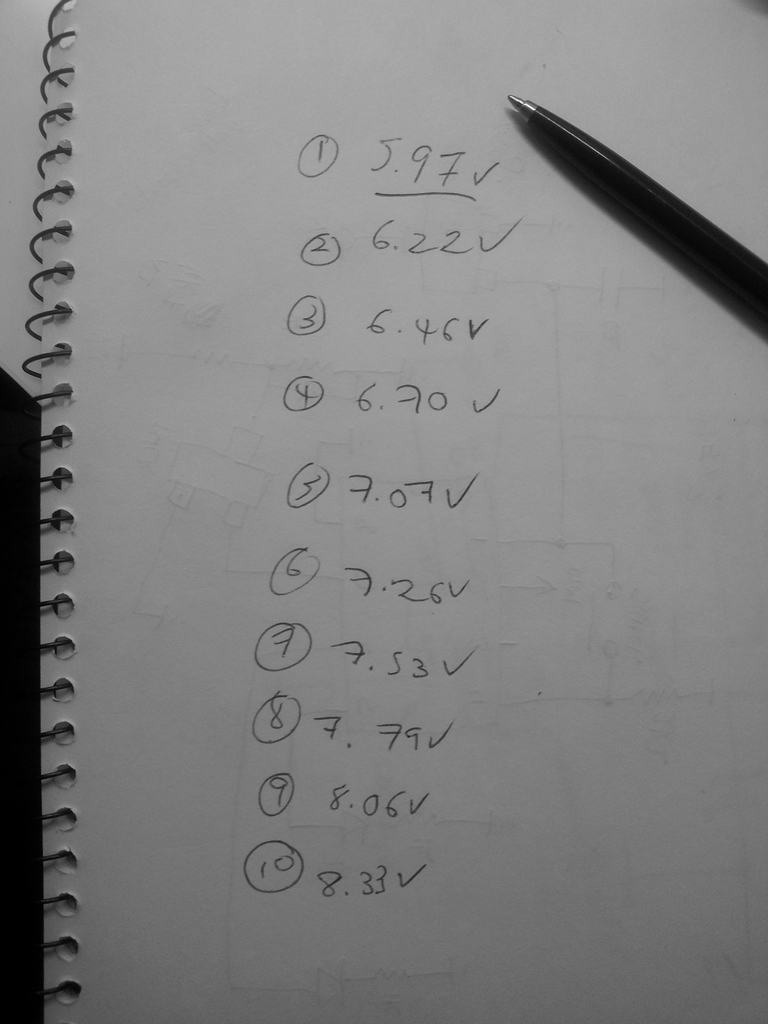 ① 5.97V
② 6.22V
③ 6.46V
④ 6.70 V
⑤ 7.07V
⑥ 7.26V
⑦ 7.53V
⑧ 7.79V
⑨ 8.06V
⑩ 8.33V